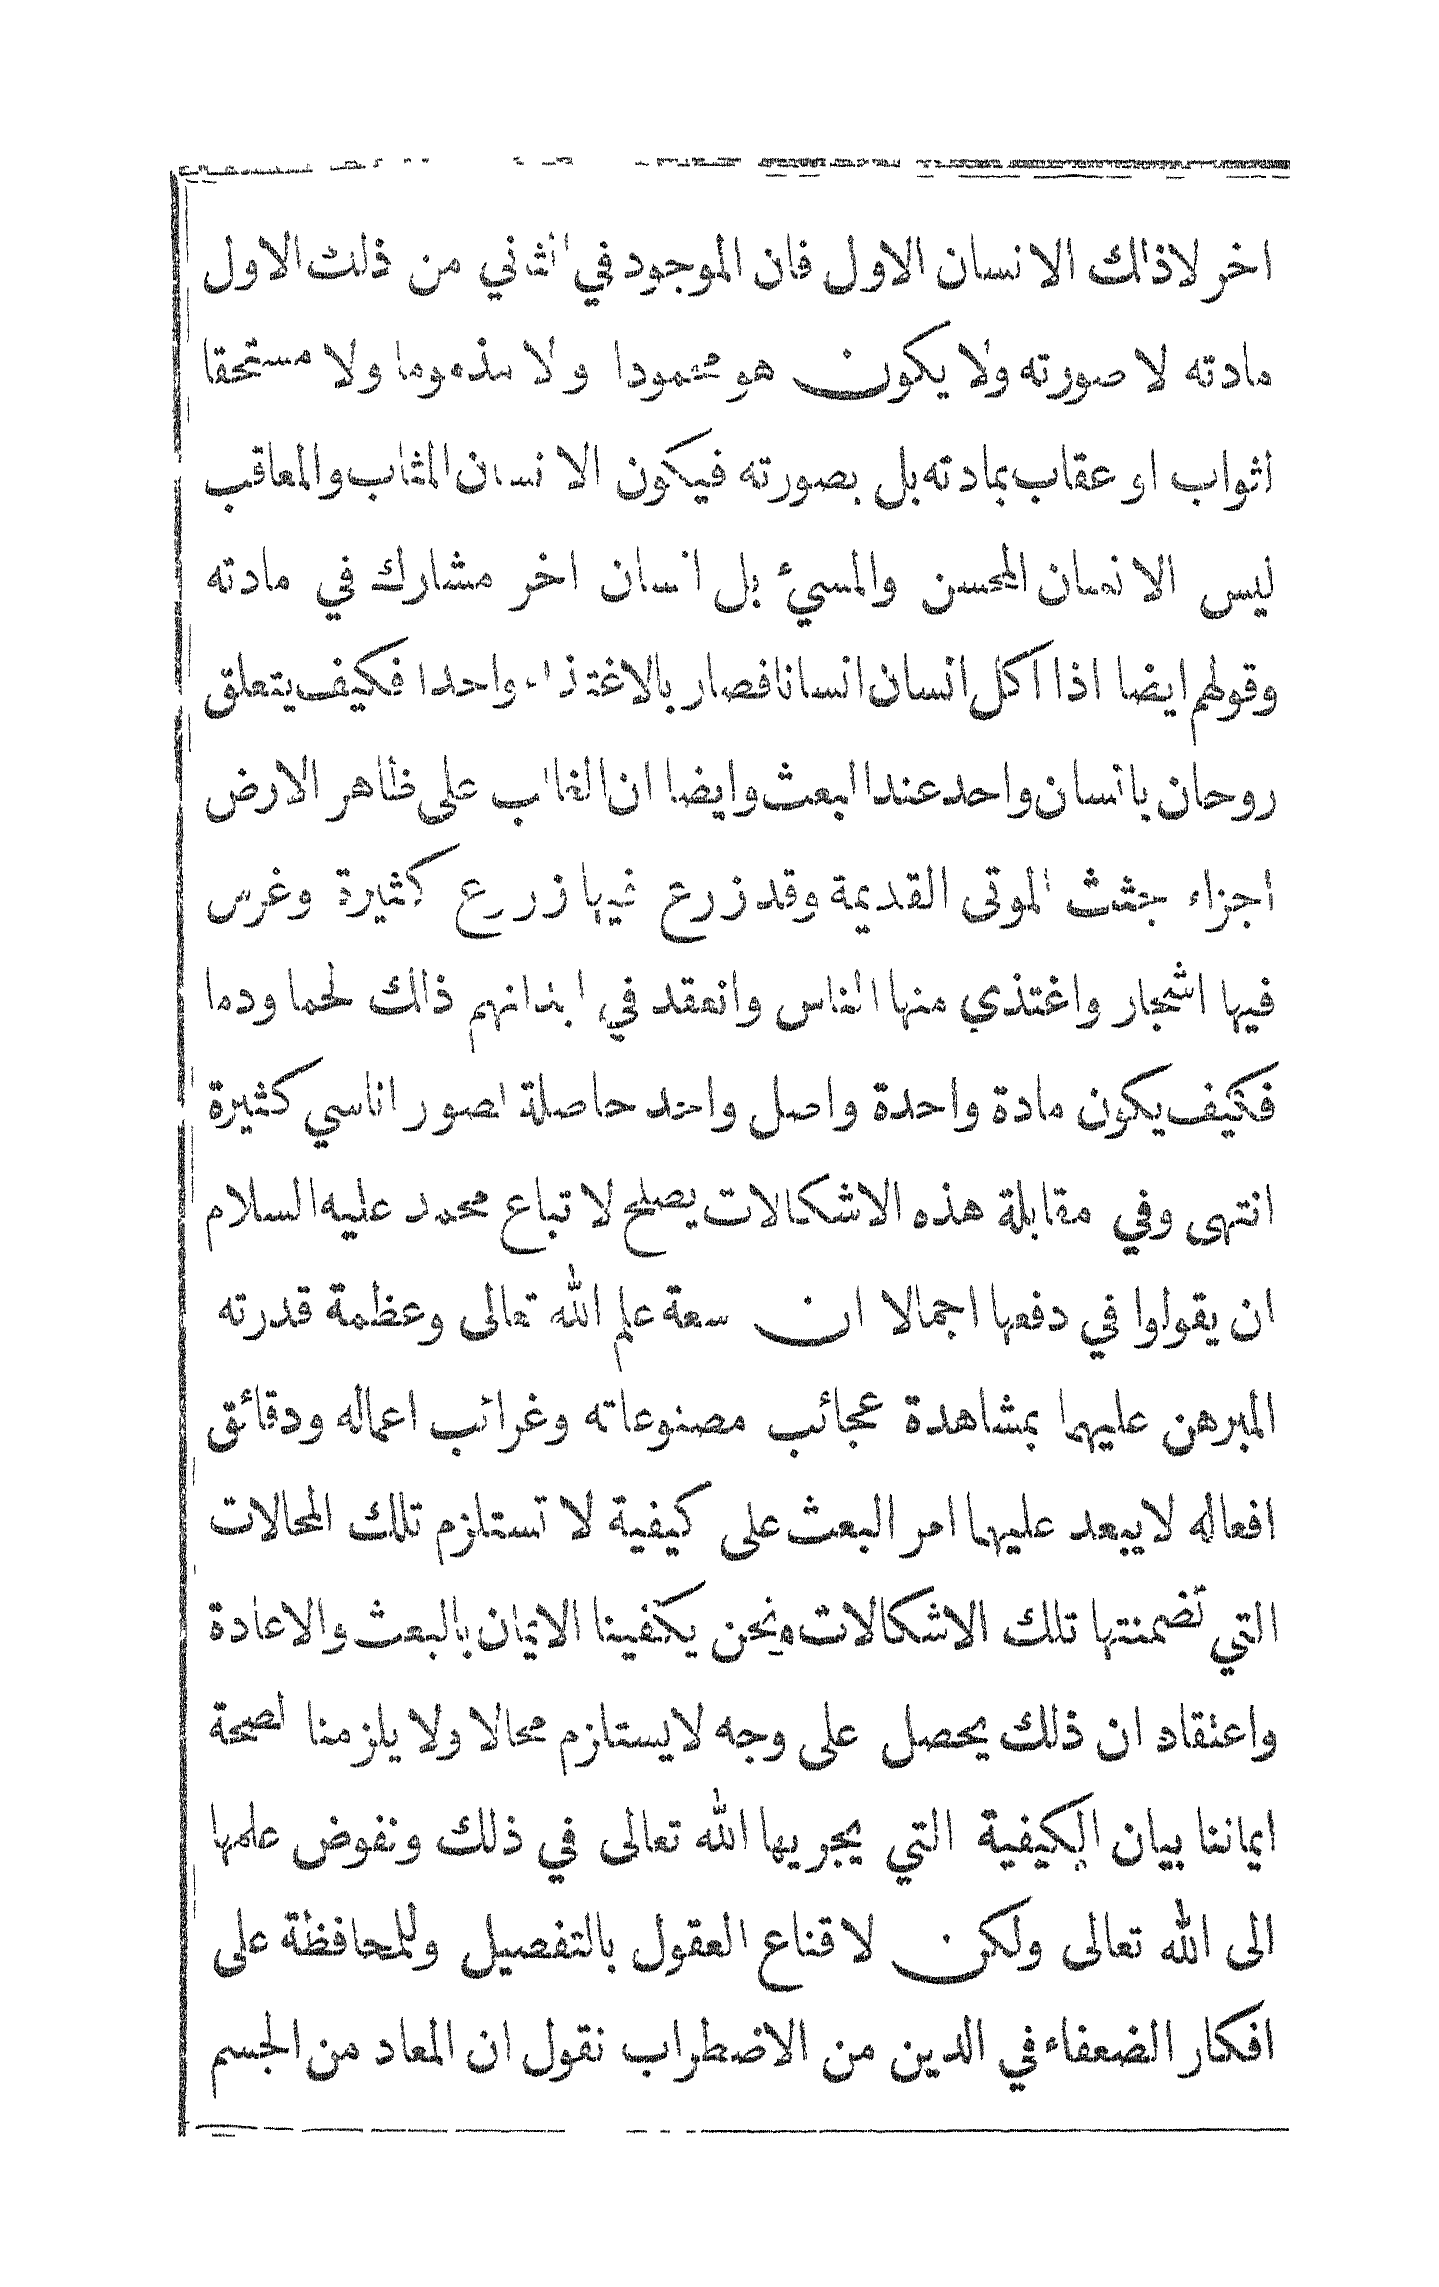 اخر لا ذلك الانسان الاول فان الموجود في الثاني من ذلك الاول
مادته لا صورته ولا يكون هو محمودا ولا مذموما ولا مستحقا
لثواب او عقاب بمادته بل بصورته فيكون الانسان المثاب والمعاقب
ليس الانسان المحسن والمسيء بل انسان اخر مشارك في مادته
وقولهم ايضا اذا اكل انسان انسانا فصار بالاغتذاء واحدا فكيف يتعلق
روحان بانسان واحد عند البعث وايضا ان الغالب على ظاهر الارض
اجزاء جثث الموتى القديمة وقد زرع فيها زروع كثيرة وغرس
فيها اشجار واغتذي منها الناس وانعقد في ابدانهم ذلك لحما ودما
فكيف يكون مادة واحدة واصل واحد حاصلة لصور اناسي كثيرة
انتهى وفي مقابلة هذه الاشكالات يصلح لاتباع محمد عليه السلام
ان يقولوا في دفعها اجمالا ان سعة علم الله تعالى وعظمة قدرته
المبرهن عليهما بمشاهدة عجائب مصنوعاته وغرائب اعماله ودقائق
افعاله لا يبعد عليهما امر البعث على كيفية لا تستلزم تلك المحالات
التي تضمنتها تلك الاشكالات ونحن يكفينا الايمان بالبعث والاعادة
واعتقاد ان ذلك يحصل على وجه لا يستلزم محالا ولا يلزمنا لصحة
ايماننا بيان الكيفية التي يجريها الله تعالى في ذلك ونفوض علمها
الى الله تعالى ولكن لاقناع العقول بالتفصيل وللمحافظة على
افكار الضعفاء في الدين من الاضطراب نقول ان المعاد من الجسم